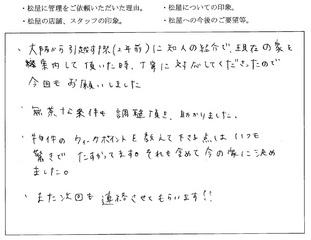 ・松屋に管理をご依頼いただいた理由。
・松屋についての印象。
・松屋の店舗、スタッフの印象。
・松屋への今後のご要望等。
・大阪から引越す際(2年前)に知人の紹介で、現在の家と
案内して頂いた時、丁寧に対応してくださったので
今回も お願いしました
・無茶な条件も 調整頂き、助かりました。
・物件の ウィークポイントを 教えて下さる点は いつも
驚きで たすかってます。それも含めて 今の家に決め
ました。
・また次回も 連絡させてもらいます!!